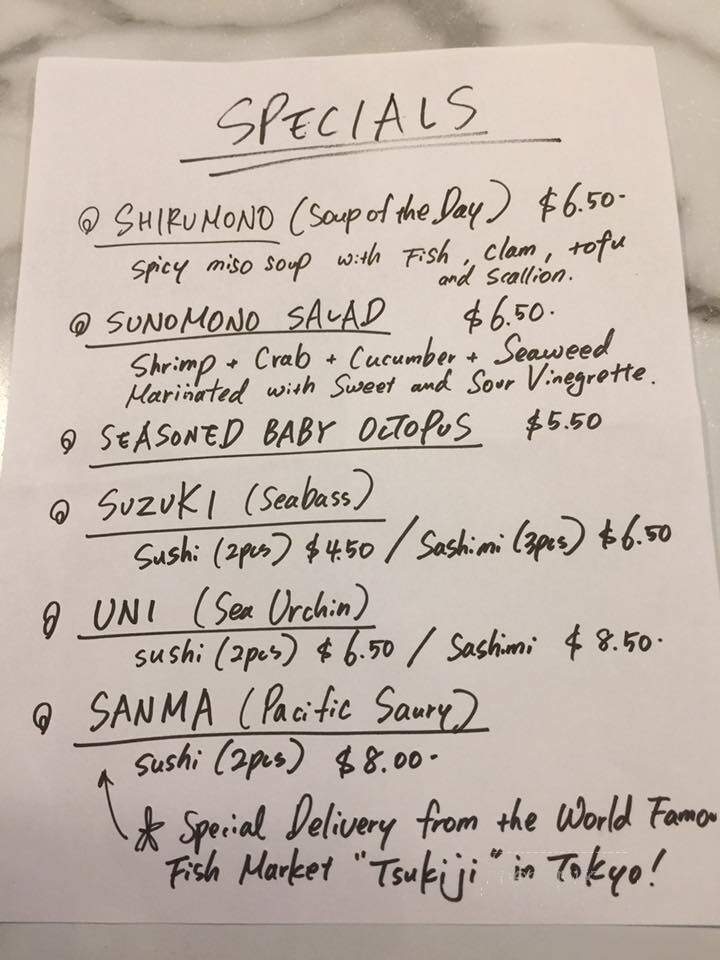 SPECIALS
SHIRUMONO (Soup of the Day) $6.50-
Spicy miso soup with Fish, Clam, tofu
and Scallion.
SUNOMONO SALAD $6.50-
Shrimp + Crab + Cucumber + Seaweed
Marinated with Sweet and Sour Vinegrette.
SEASONED BABY OCTOPUS $5.50
SUZUKI (Seabass)
Sushi (2pcs) $4.50 / Sashimi (3pcs) $6.50
UNI (Sea Urchin)
sushi (2pcs) $6.50 / Sashimi $8.50-
SANMA (Pacific Saury)
sushi (2pcs) $8.00-
* Special Delivery from the World Famou
Fish Market "Tsukiji" in Tokyo!